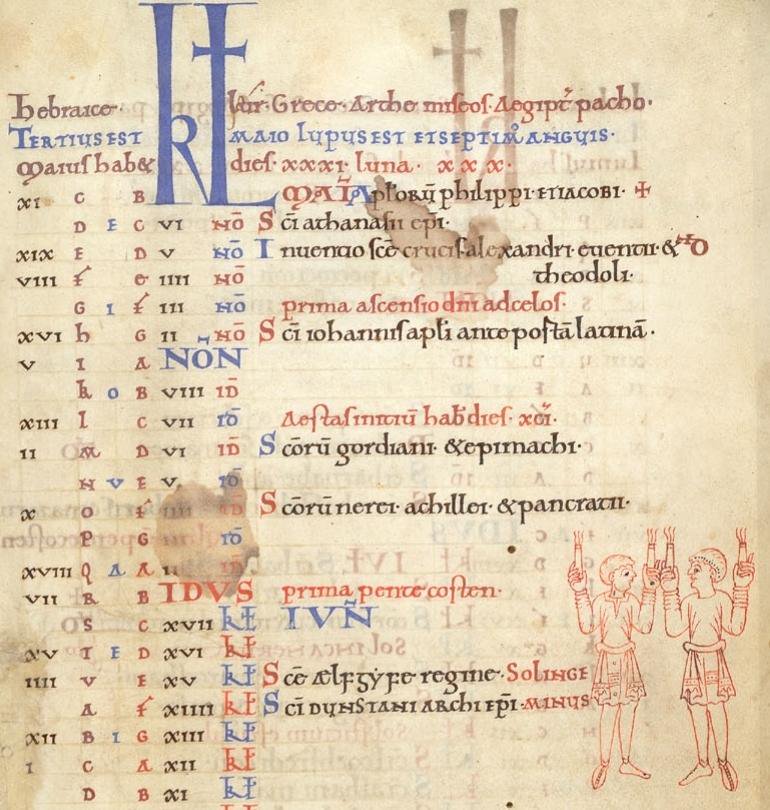 KL
hebraice· Iair· Grece· Arthemiseos· Aegipt̄ pacho·
TERTIUS EST MAIO LUPUS EST ET SEPTIM' ANGUIS·
Maius hab& dies· xxxi· luna· xxx·
XI C B MAĪ Aplorū philippi· et iacobi· +
D E C VI NŌ Sc̄i athanasii epi·
XIX E D V NŌ Inuentio sc̄e crucis· alexandri· euentii· &
VIII F E IIII NŌ theodoli·
G I F III NŌ prima ascensio dn̄i ad celos·
XVI h G II NŌ Sc̄i iohannis apl̄i ante portā latinā·
V I A NŌN
k O B VIII ID
XIII l C VII ID Aestas initiū hab& dies· xci·
II M D VI ID Sc̄orū gordiani· & epimachi·
N V E V ID
X O F ID Sc̄orū nerei· achillei· & pancratii·
P G ID
XVIII Q A A ID
VII R B IDUS prima pentecosten·
S C XVII kł IUN̄
XV T E D XVI kł
IIII V E XV kł Sc̄e ælfgẏfe regine· SOL IN GE
A F XIIII kł Sc̄i DUNSTANI ARCHIEPĪ· MINUS
XII B I G XIII kł
I C A XII kł
D B XI kł